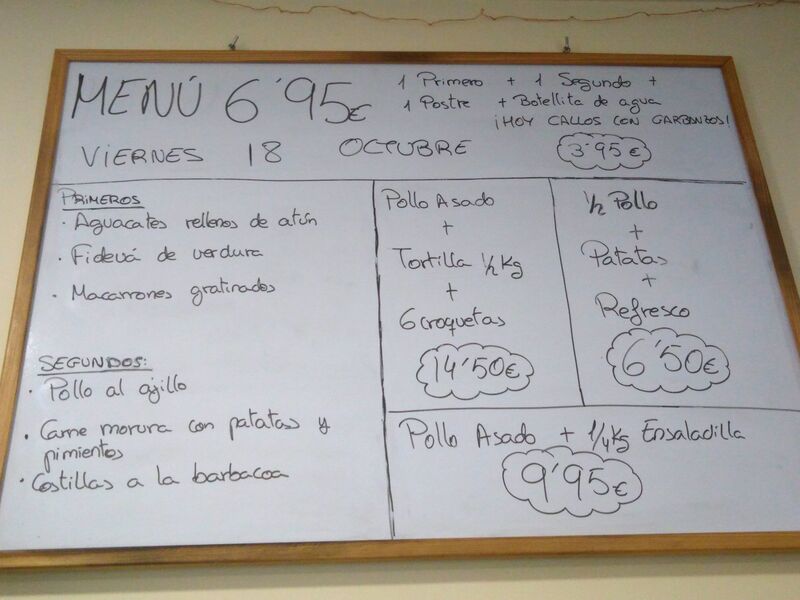 MENÚ 6'95€
1 Primero + 1 Segundo +
1 Postre + Botellita de agua
¡HOY CALLOS CON GARBANZOS!
3'95€
VIERNES 18 OCTUBRE
PRIMEROS
· Aguacates rellenos de atún
· Fidevá de verdura
· Macarrones gratinados
SEGUNDOS:
· Pollo al ajillo
· Carne moruna con patatas y
pimientos
· Costillas a la barbacoa
Pollo Asado
+
Tortilla 1/2 Kg
+
6 croquetas
14'50€
1/2 Pollo
+
Patatas
+
Refresco
6'50€
Pollo Asado + 1/4 Kg Ensaladilla
9'95€